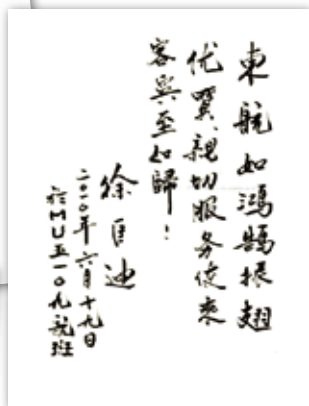 東航如鴻鵠振翅
优質、親切服务使乘
客宾至如歸！
徐匡迪
二〇一〇年六月十九日
於MU五一〇九航班